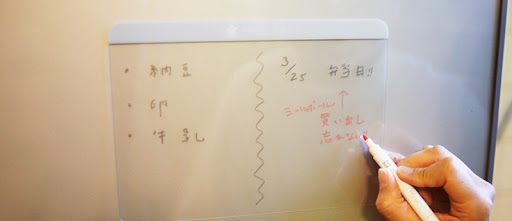 ・納豆
・卵
・牛乳
3/25 弁当日!!
↑
ミールボール
買い出し
忘れない